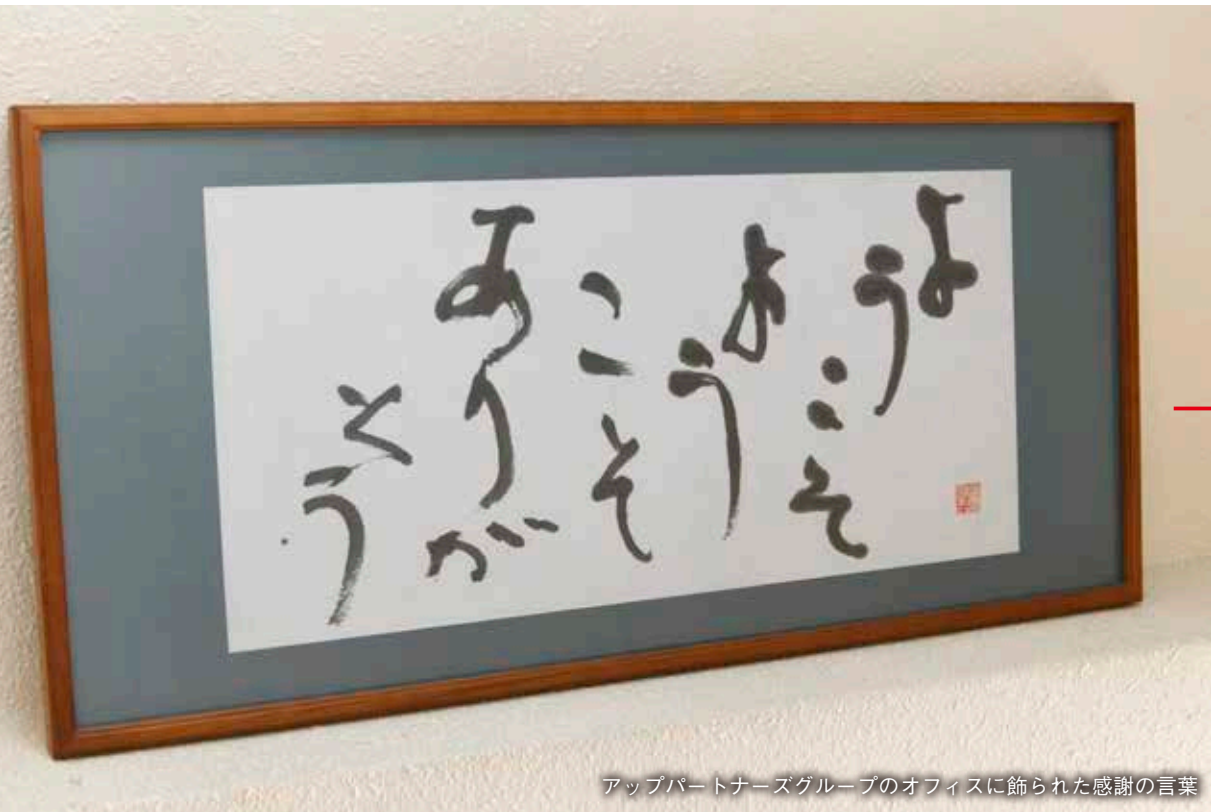 よう
こそ
よう
こそ
ありが
とう
アップパートナーズグループのオフィスに飾られた感謝の言葉